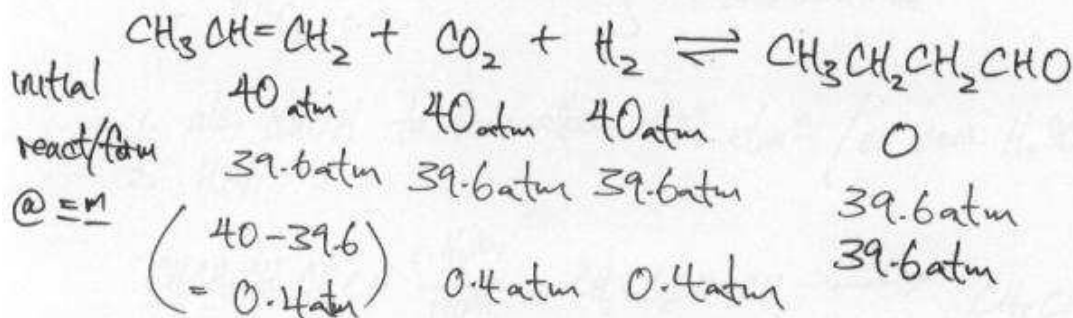 CH₃CH=CH₂ + CO₂ + H₂ ⇌ CH₃CH₂CH₂CHO
initial 40 atm 40 atm 40 atm 0
react/form 39.6 atm 39.6 atm 39.6 atm 39.6 atm
@ =m (40-39.6 = 0.4 atm) 0.4 atm 0.4 atm 39.6 atm